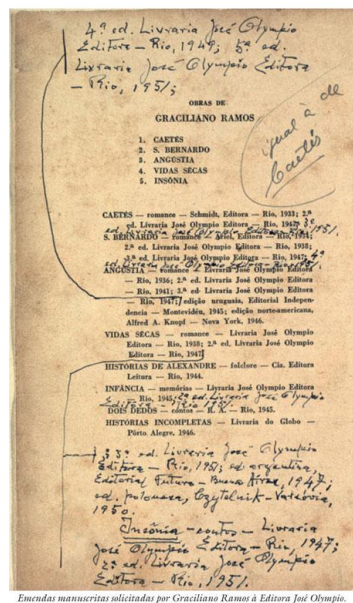 4ª ed. Livraria José Olympio
Editora — Rio, 1949; 5ª ed.
Livraria José Olympio Editora
— Rio, 1951;
OBRAS DE
GRACILIANO RAMOS
igual à de
Caetés
1. CAETÉS
2. S. BERNARDO
3. ANGÚSTIA
4. VIDAS SÊCAS
5. INSÔNIA
CAETÉS — romance — Schmidt, Editora — Rio, 1933; 2.ª
ed. Livraria José Olympio Editora — Rio, 1947; 3ª
ed. Livraria José Olympio Editora — Rio, 1951.
S. BERNARDO — romance — Ariel, Editora — Rio, 1934;
2.ª ed. Livraria José Olympio Editora — Rio, 1938;
3.ª ed. Livraria José Olympio Editora — Rio, 1947; 4ª
ed. Livraria José Olympio Editora
ANGÚSTIA — romance — Livraria José Olympio Editora
— Rio, 1936; 2.ª ed. Livraria José Olympio Editora
— Rio, 1941; 3.ª ed. Livraria José Olympio Editora
— Rio, 1947; edição uruguaia, Editorial Indepen-
dencia — Montevidéu, 1945; edição norte-americana,
Alfred A. Knopf — Nova York, 1946.
VIDAS SÊCAS — romance — Livraria José Olympio
Editora — Rio, 1938; 2.ª ed. Livraria José Olympio
Editora — Rio, 1947
HISTÓRIAS DE ALEXANDRE — folclore — Cia. Editora
Leitura — Rio, 1944.
INFÂNCIA — memórias — Livraria José Olympio Editora
— Rio, 1945; 2ª ed. Livraria José Olympio
Editora — Rio,
DOIS DEDOS — contos — R. A. — Rio, 1945.
HISTÓRIAS INCOMPLETAS — Livraria do Globo —
Pôrto Alegre, 1946.
; 3ª ed. Livraria José Olympio
Editora — Rio, 1951; ed. argentina,
Editorial Futuro — Buenos Aires, 1947;
ed. polonesa, Czytelnik — Varsóvia,
1950.
Insônia — contos — Livraria
José Olympio Editora — Rio, 1947;
2ª ed. Livraria José Olympio
Editora — Rio, 1951.
Emendas manuscritas solicitadas por Graciliano Ramos à Editora José Olympio.